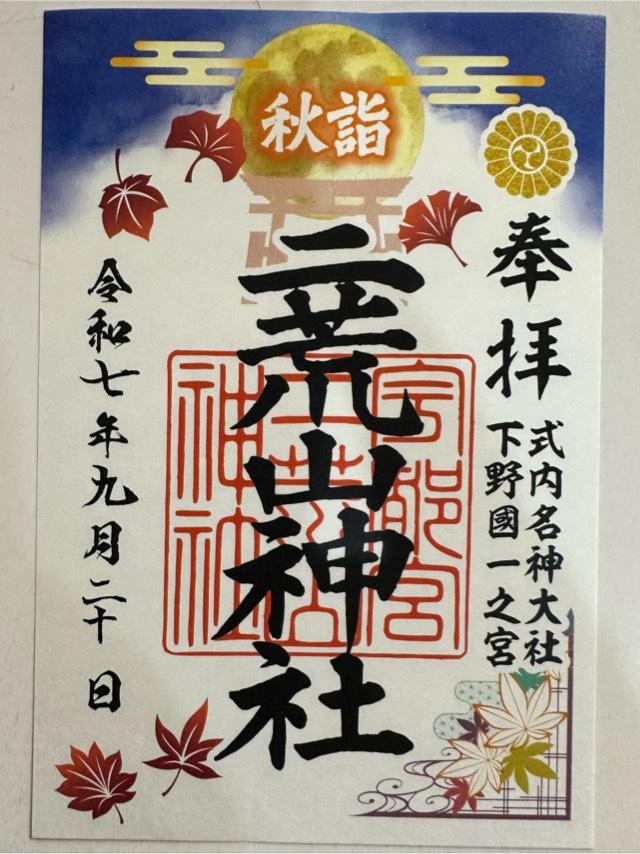 秋詣
奉拝
式内名神大社
下野國一之宮
二荒山神社
宇都宮
二荒山
神社
令和七年九月二十日